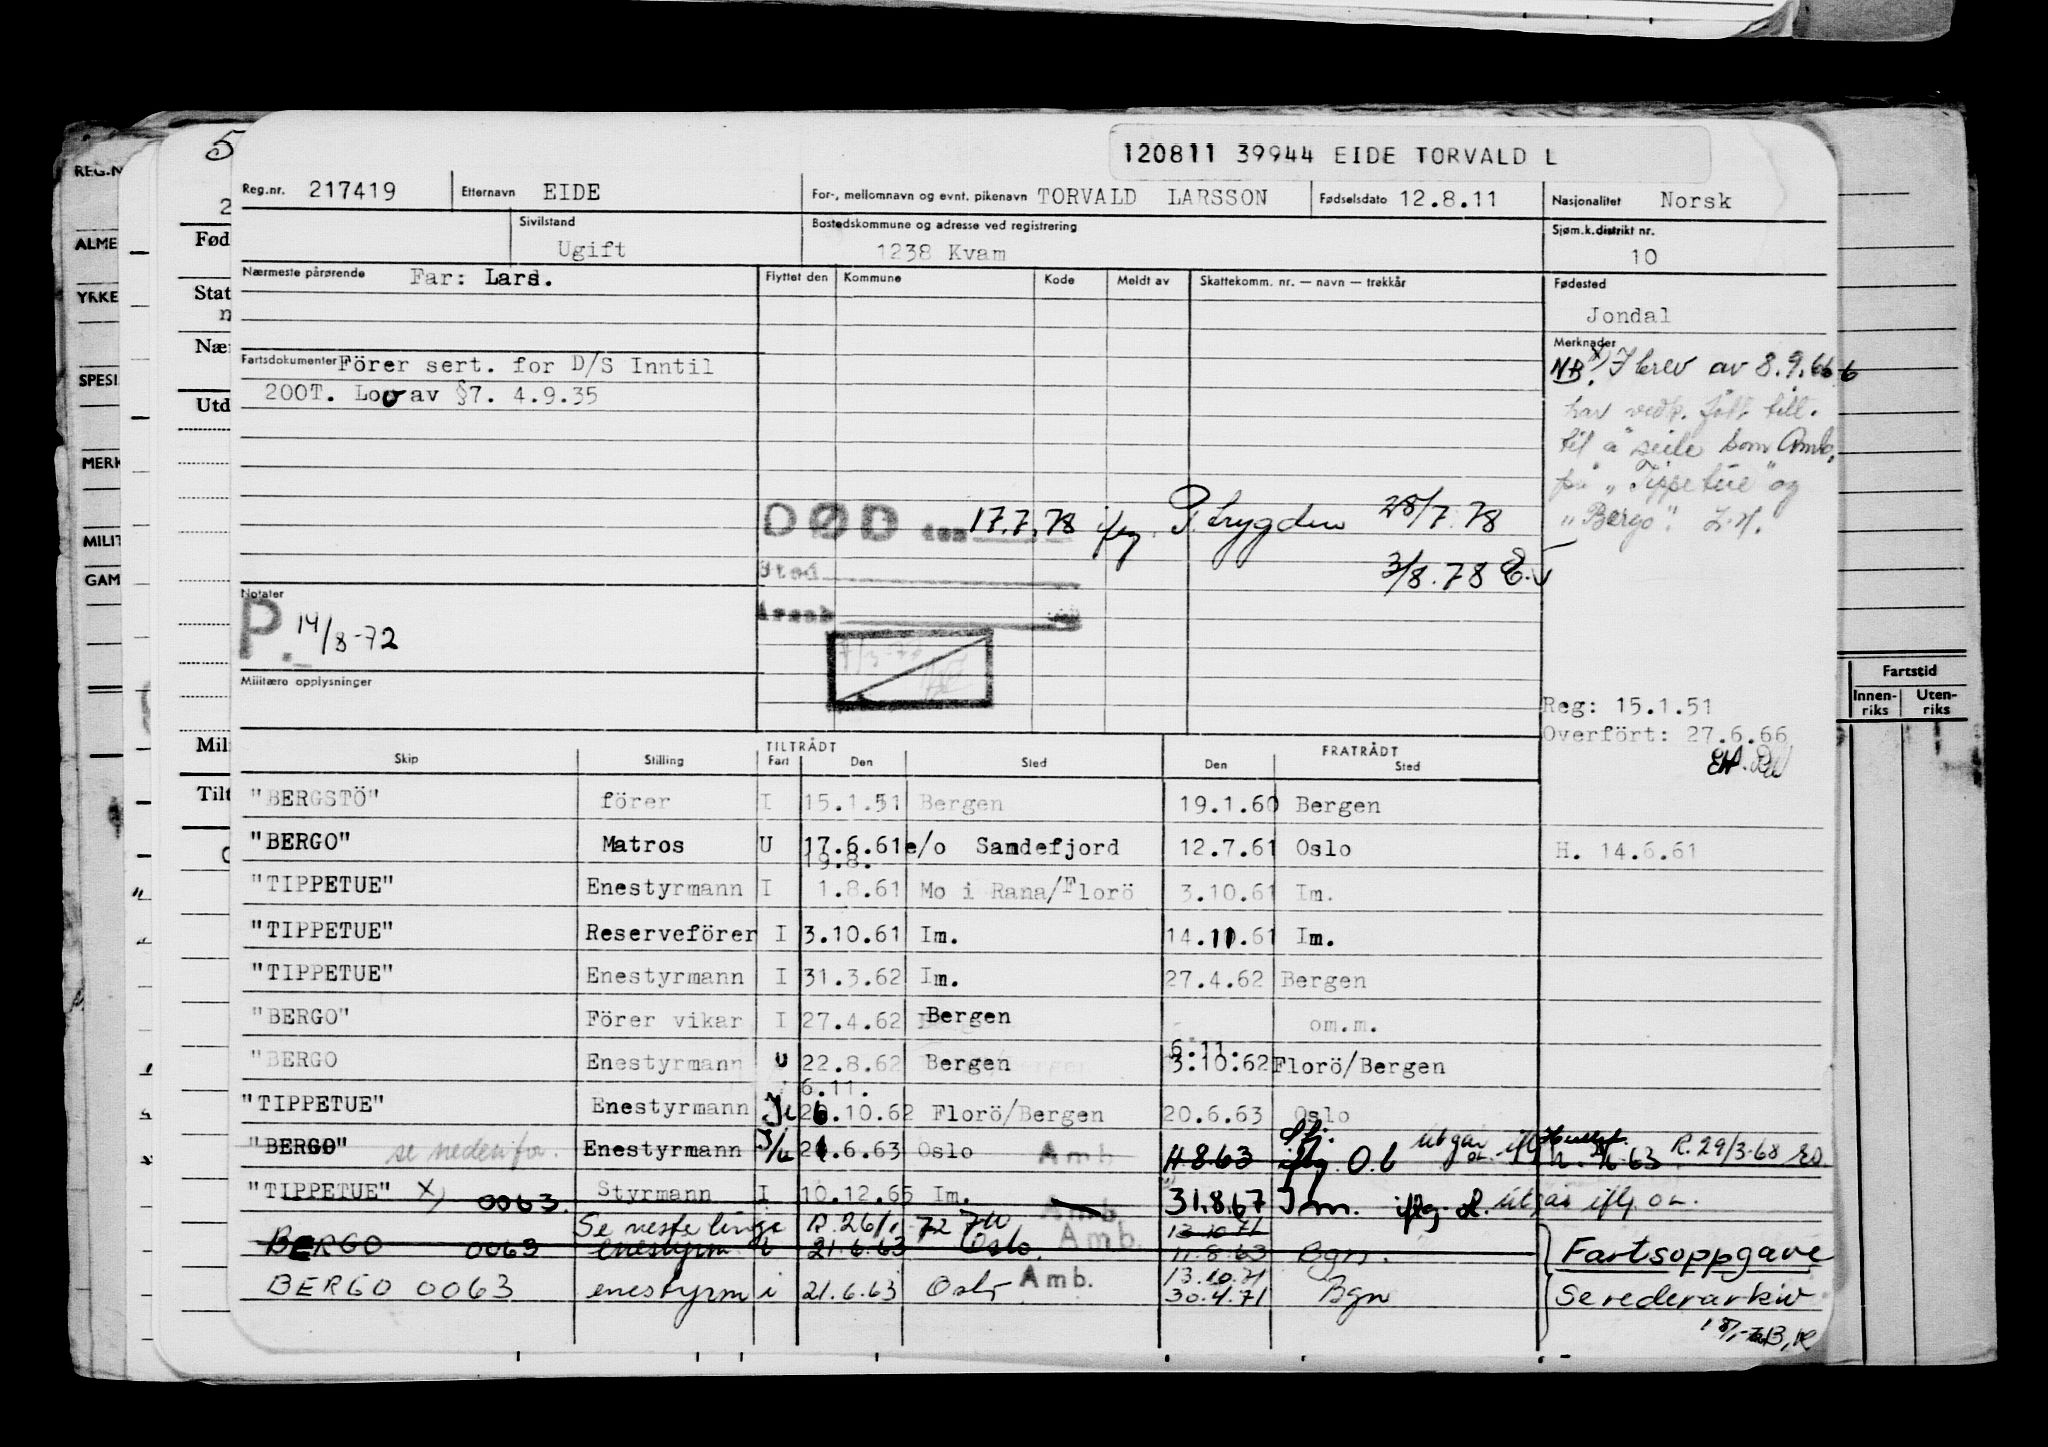 120811 39944 EIDE TORVALD L
Reg.nr. 217419 Etternavn EIDE For-, mellomnavn og evnt. pikenavn TORVALD LARSSON Fødselsdato 12.8.11 Nasjonalitet Norsk
Sivilstand Ugift Bostedskommune og adresse ved registrering 1238 Kvam Sjøm.k.distrikt nr. 10
Nærmeste pårørende Far: Lars. Flyttet den Kommune Kode Meldt av Skattekomm. nr. — navn — trekkår Fødested
Jondal
Merknader
Fartsdokumenter Förer sert. for D/S Inntil
200T. Lov av §7. 4.9.35
NB. x) I brev av 8.9.66
har vedk. fått till.
til å seile som Amb.
på "Tippetue" og
"Bergo".
DØD den 17.7.78 ifg. P. trygden 28/7.78
Sted 3/8.78
Notater
P. 14/8-72
Militære opplysninger
Reg: 15.1.51
Overfört: 27.6.66
TILTRÅDT FRATRÅDT
Skip Stilling Fart Den Sted Den Sted
"BERGSTÖ" förer I 15.1.51 Bergen 19.1.60 Bergen
"BERGO" Matros U 17.6.61 e/o Sandefjord 12.7.61 Oslo H. 14.6.61
19.8.
"TIPPETUE" Enestyrmann I 1.8.61 Mo i Rana/Florö 3.10.61 Im.
"TIPPETUE" Reserveförer I 3.10.61 Im. 14.11.61 Im.
"TIPPETUE" Enestyrmann I 31.3.62 Im. 27.4.62 Bergen
"BERGO" Förer vikar I 27.4.62 Bergen om.m.
6.11.
"BERGO Enestyrmann U 22.8.62 Bergen 3.10.62 Florö/Bergen
6.11.
"TIPPETUE" Enestyrmann 26.10.62 Florö/Bergen 20.6.63 Oslo
"BERGO" se nedenfor. Enestyrmann I/u 21.6.63 Oslo Amb 11.8.63 ifg. O.b utgår R. 29/3-68
"TIPPETUE" x) 0063. Styrmann I 10.12.65 Im. Amb. 31.8.67 Im. utgår iflg
Se neste linje R. 26/1-72 13.10.71
BERGO 0063 enestyrm i 21.6.63 Oslo. Amb. 11.8.63 Bgn. Fartsoppgave
13.10.71
BERGO 0063 enestyrm i 21.6.63 Oslo Amb. 30.4.71 Bgn Se rederarkiv
REG.N
ALME
YRKE
SPESI
MERK
MILIT
GAM
Fød
Stat
Nær
Utd
Mil
Tilt
Fartstid
Innen-riks Uten-riks